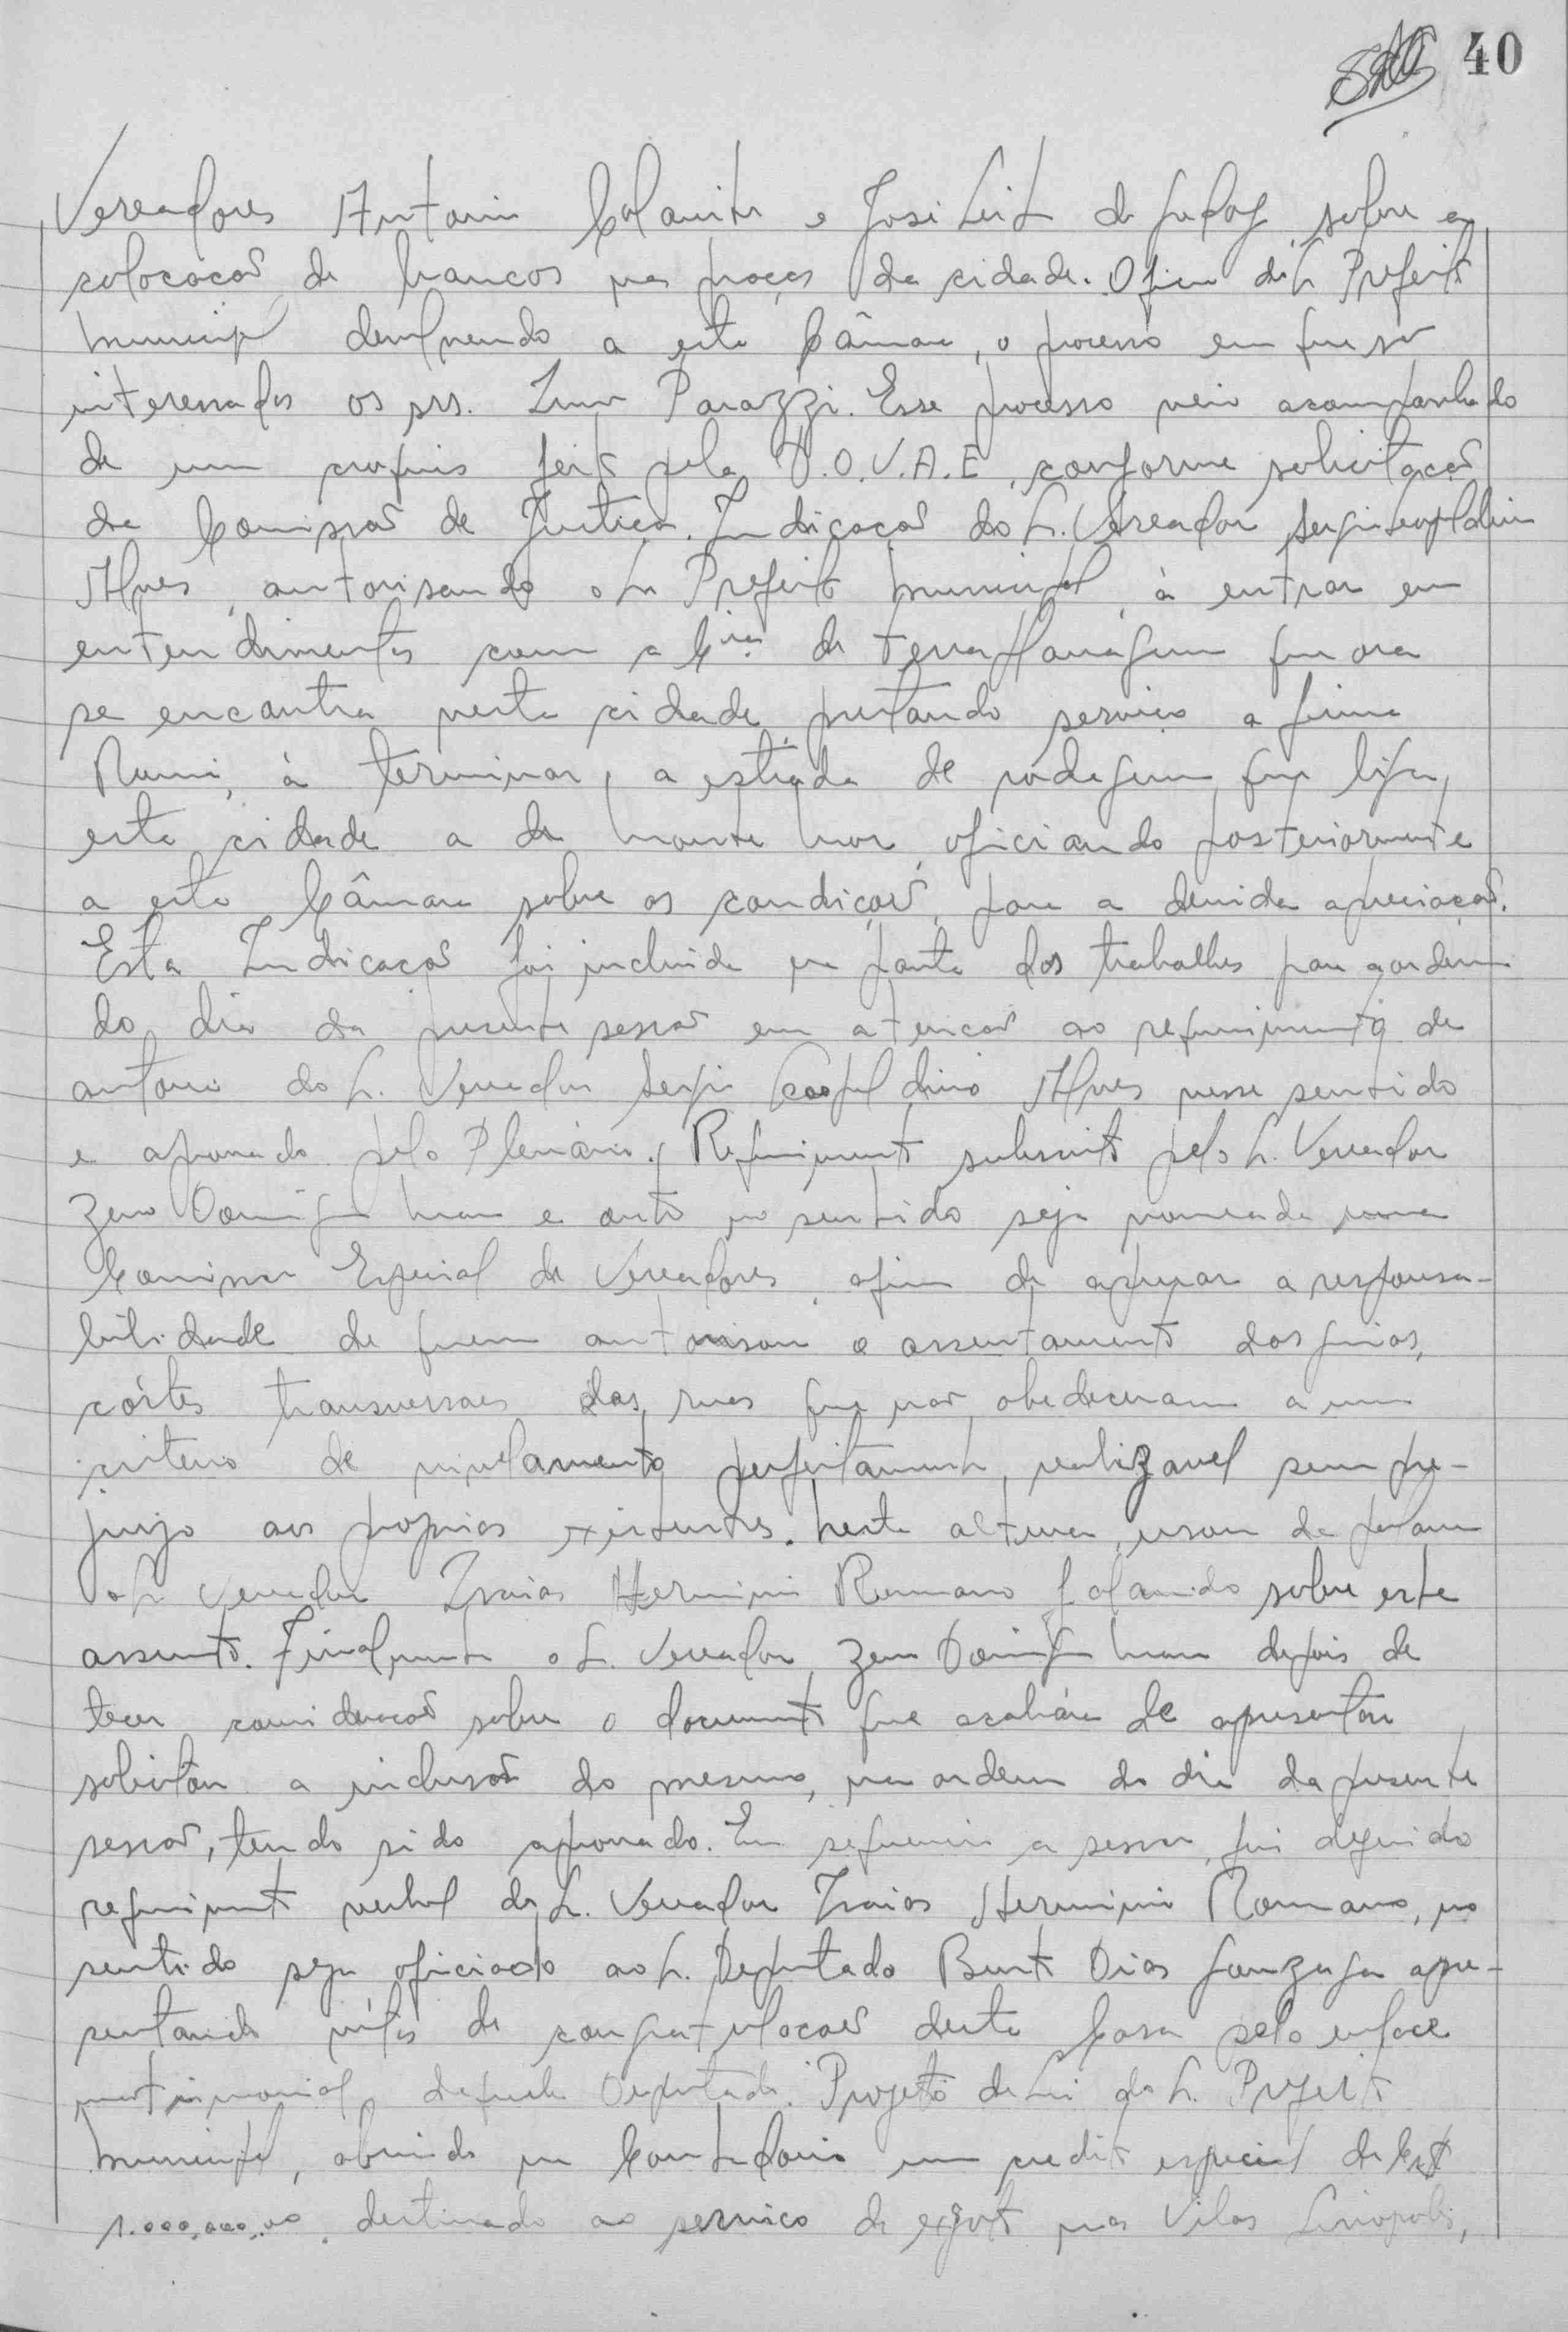 40
Vereadores Antonio e José Leite de sobre a
colocação de bancos nas praças da cidade. Oficio do Sr. Prefeito
municipal devolvendo a esta Câmara, o processo em que são
interessados os srs. Parazzi. Esse processo veio acompanhado
de um croquis feito pela D.O.V.A.E, conforme solicitação
da Comissão de Justiça. Indicação do Sr. Vereador Sergio Leopoldino
Alves, autorisando o Sr. Prefeito municipal, à entrar em
entendimentos com a Cia. de terraplanagem que ora
se encontra nesta cidade, prestando serviço a firma
Romi, à terminar, a estrada de rodagem que liga
esta cidade a de monte mor, oficiando posteriormente
a esta Câmara sobre as condições, para a devida apreciação.
Esta Indicação foi incluida na pauta dos trabalhos para a ordem
do dia da presente sessão em atenção ao requerimento de
autoria do Sr. Vereador Sergio Leopoldino Alves nesse sentido
e aprovado pelo Plenário. Requerimento subscrito pelo Sr. Vereador
Zeno Domingues Maia e outro no sentido seja nomeada uma
Comissão Especial de Vereadores, afim de apurar a responsa-
bilidade de quem autorisou o assentamento das guias,
córtes transversaes das ruas que não obedeceram a um
criterio de nivelamento perfeitamente, realizavel sem pre-
juizo aos proprios existentes. Nesta altura, usou da palavra
o Sr. Vereador Izaias Herminio Romano falando sobre este
assunto. Finalmente o Sr. Vereador Zeno Domingues Maia depois de
tecer consideração sobre o documento que acabára de apresentar
solicitou a inclusão do mesmo, na ordem do dia da presente
sessão, tendo sido aprovado. Em sequencia a sessão, foi deferido
requerimento verbal do Sr. Vereador Izaias Herminio Romano, no
sentido seja oficiado ao Sr. Deputado Bento Dias Gonzaga apre-
sentando vótos de congratulações desta Casa pelo enlace
matrimonial daquele Deputado. Projeto de Lei do Sr. Prefeito
municipal, abrindo na Contadoria um credito especial de Cr$
1.000.000,00, destinado ao serviço de esgoto nas Vilas Linopolis,